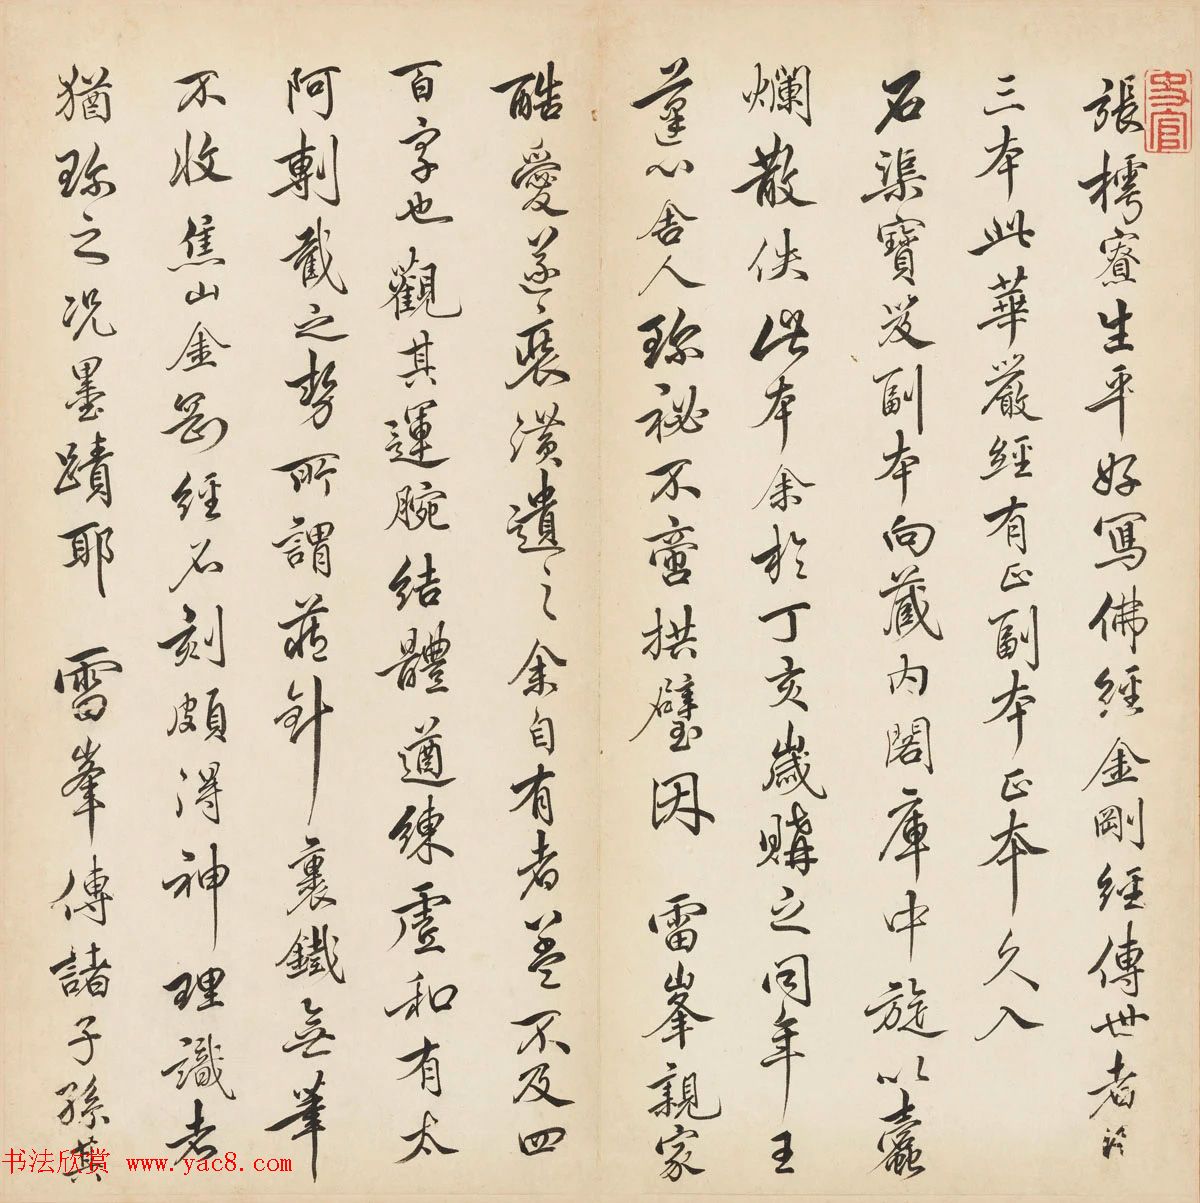 史官
張樗寮生平好寫佛經金剛經傳世者訡
三本此華嚴經有正副本正本久入
石渠寶笈副本向藏内閣庫中旋以蠹
爛散佚此本余於丁亥歲購之同年王
蓬心舍人珍祕不啻拱璧因 雷峯親家
酷愛遂裝潢遺之余自有者益不及四
百字也觀其運腕結體遒練虛和有太
阿剸截之勢所謂蒞針裹鐵無筆
不收焦山金剛經石刻頗得神理識者
猶珍之況墨蹟耶 雷峯傳諸子孫其
书法欣赏 www.yac8.com